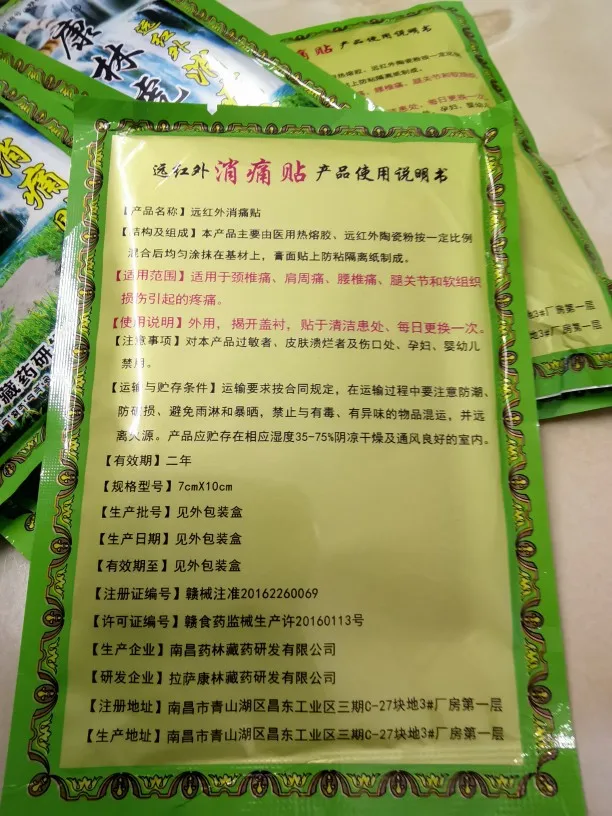 康林
远红外消
消痛
藏药研
痛贴 产品使用说明书
远红外消痛贴产品使用说明书
【产品名称】远红外消痛贴
【结构及组成】本产品主要由医用热熔胶、远红外陶瓷粉按一定比例
混合后均匀涂抹在基材上，膏面贴上防粘隔离纸制成。
【适用范围】适用于颈椎痛、肩周痛、腰椎痛、腿关节和软组织
损伤引起的疼痛。
【使用说明】外用，揭开盖衬，贴于清洁患处、每日更换一次。
【注意事项】对本产品过敏者、皮肤溃烂者及伤口处、孕妇、婴幼儿
禁用。
【运输与贮存条件】运输要求按合同规定，在运输过程中要注意防潮、
防破损、避免雨淋和暴晒，禁止与有毒、有异味的物品混运，并远
离火源。产品应贮存在相应湿度35-75%阴凉干燥及通风良好的室内。
【有效期】二年
【规格型号】7cmX10cm
【生产批号】见外包装盒
【生产日期】见外包装盒
【有效期至】见外包装盒
【注册证编号】赣械注准20162260069
【许可证编号】赣食药监械生产许20160113号
【生产企业】南昌药林藏药研发有限公司
【研发企业】拉萨康林藏药研发有限公司
【注册地址】南昌市青山湖区昌东工业区三期C-27块地3#厂房第一层
【生产地址】南昌市青山湖区昌东工业区三期C-27块地3#厂房第一层